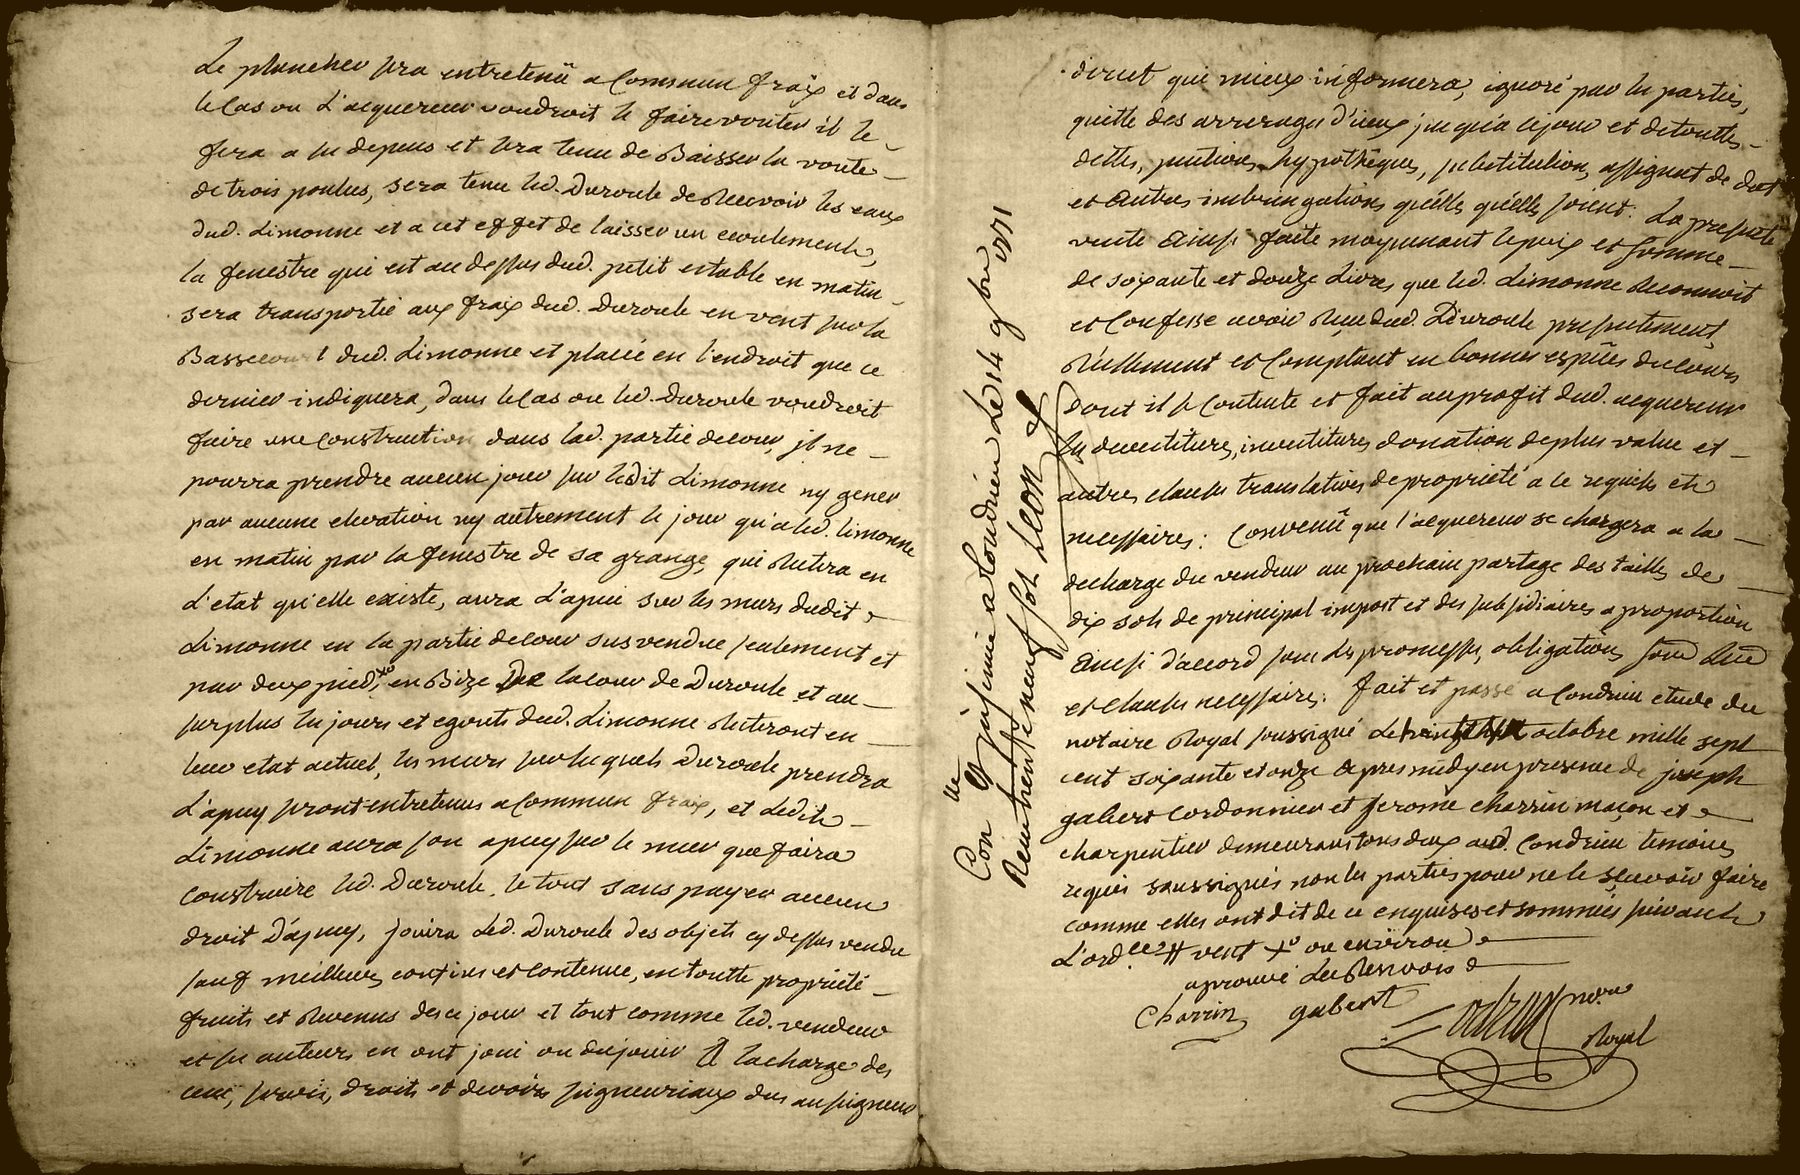 Le plancher sera entretenü a Commun fraix et dans
le Cas ou L'acquereur voudroit le faire vouter il le
fera a ses depens et sera tenu de Baisser la voute
de trois poulces, sera tenu led. Duroule de Recevoir les eaux
dud. Limonne et a cet effet de laisser un ecoulement,
la fenestre qui est au dessus dud. petit estable en matin
sera transportée aux fraix dud. Duroule en vent sur la
Bassecour dud. Limonne et placée en l'endroit que ce
dernier indiquera, dans le Cas ou led. Duroule voudroit
faire une Construction dans lad. partie de cour, il ne
pourra prendre aucun jour sur ledit Limonne ny gener
par aucune elevation ny autrement le jour qu'a led. limonne
en matin par la fenestre de sa grange, qui Restera en
L'etat qu'elle existe, aura L'apui sur les murs dudit
Limonne en la partie de cour sus vendue seulement et
par deux pied, x° en Bize la cour de Duroule et au
surplus les jours et egouts dud. Limonne Resteront en
leur etat actuel, les murs sur lesquels Duroule prendra
L'apuy seront entretenus a Commun fraix, et Ledit
Limonne aura son apuy sur le mur que faira
Construire led. Duroule, le tout sans payer aucun
droit D'apuy, jouira Led. Duroule des objets cy dessus vendu
sauf meilleurs confins et Contenue, en toutte proprieté
fruits et Revenus de ce jour et tout comme led. vendeur
et ses auteurs en ont joui ou du jouir A la charge des
cens, servis, droits et devoirs seigneuriaux dus au seigneur
direct qui mieux informera, ignoré par les parties,
quitte des arrerages d'iceux jusqu'a ce jour et de touttes
dettes, pentions, hypothêques, substitution, assignat de dot
et Autres imbringations quelles qu'elles soient. La presente
vente Ainsi faite moyennant le prix et Somme
de soixante et douze Livres que led. Limonne Reconnoit
et Confesse avoir Reçu dud. Duroule presentement
Réellement et Comptant en bonnes espéces du cours
Dont il se Contente et fait au profit dud. acquereur
les devestitures, investitures, donation de plus value et
autres clauses translatives de propriété a ce requises et
necessaires: Convenü que l'acquereur se chargera a la
decharge du vendeur au prochain partage des tailles de
dix sols de principal impost et des subsidiaires a proportion
Ainsi d'accord sous les promesses, obligations,
et clauses necessaires: fait et passé a Condrieu etude du
notaire Royal soussigné Le octobre mille sept
cent soixante et onze Apres midy en presence de joseph
gabert Cordonnier et jerome charrin maçon et
charpentier demeurants tous deux aud. Condrieu temoins
requis soussignés non les parties pour ne le scavoir faire
comme elles ont dit de ce enquises et sommées suivant
L'ord.ce # vent x° ou environ
aprouvé les Renvois
Charrin gabert
no.re
Royal
Con.lé a Condrieu Le 14 9bre 1771
Reçu trente neuf sols Leon